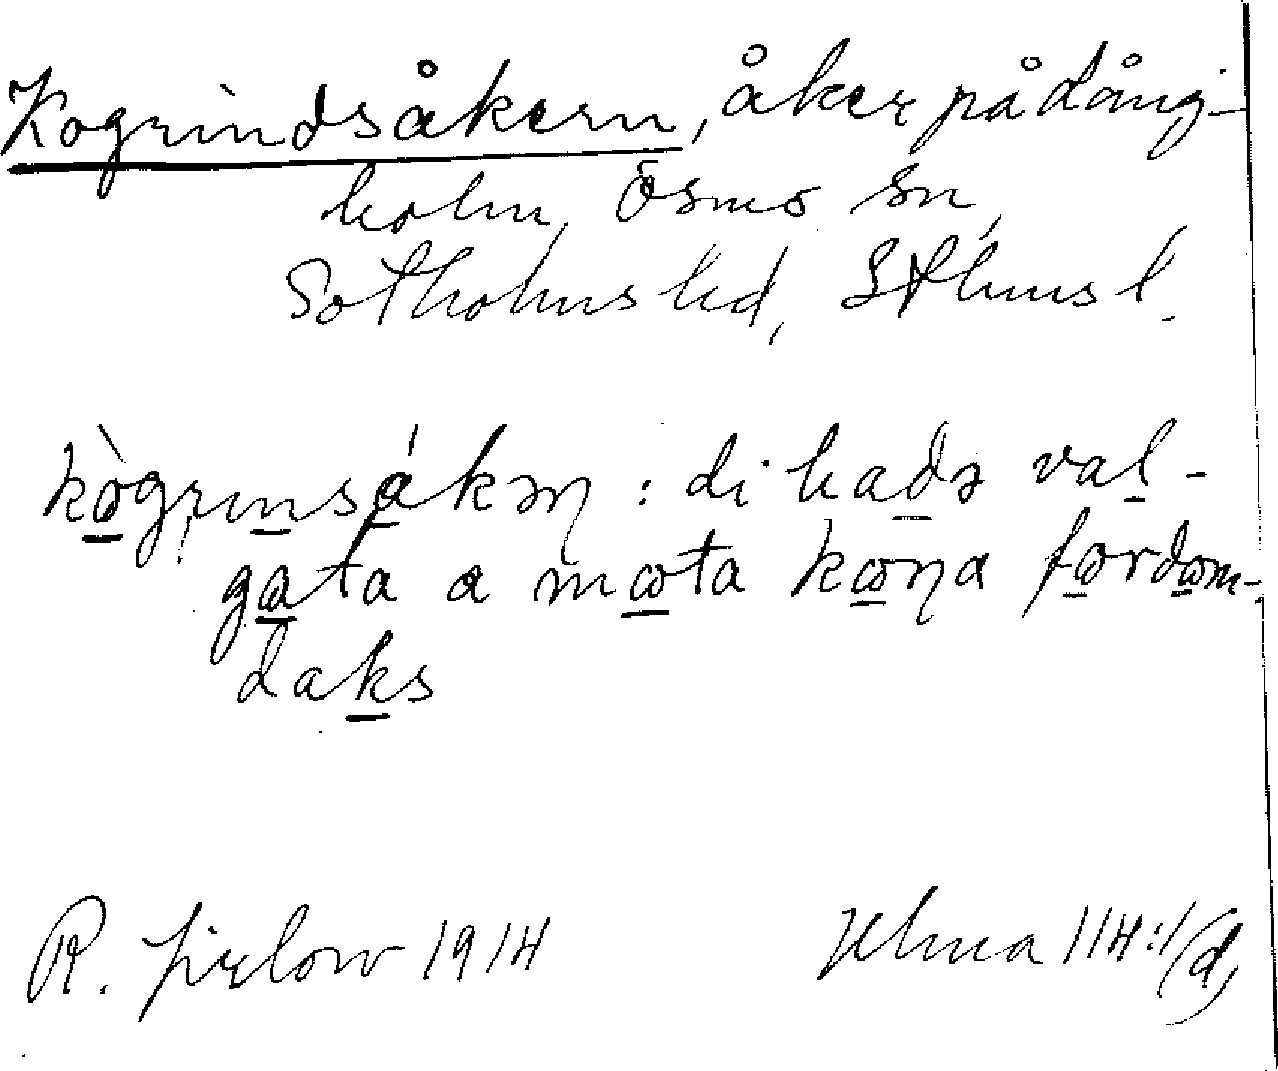 Kogrindsåkern, åker på Djäng-
holm, Ösmo sn,
Sotholms hd, Sthms l.
kògrınsákəɳ : di hadə val-
gata a mɷta kɷɳa fordɷm-
daks
R. 1914 Ulma 114:1/(d)